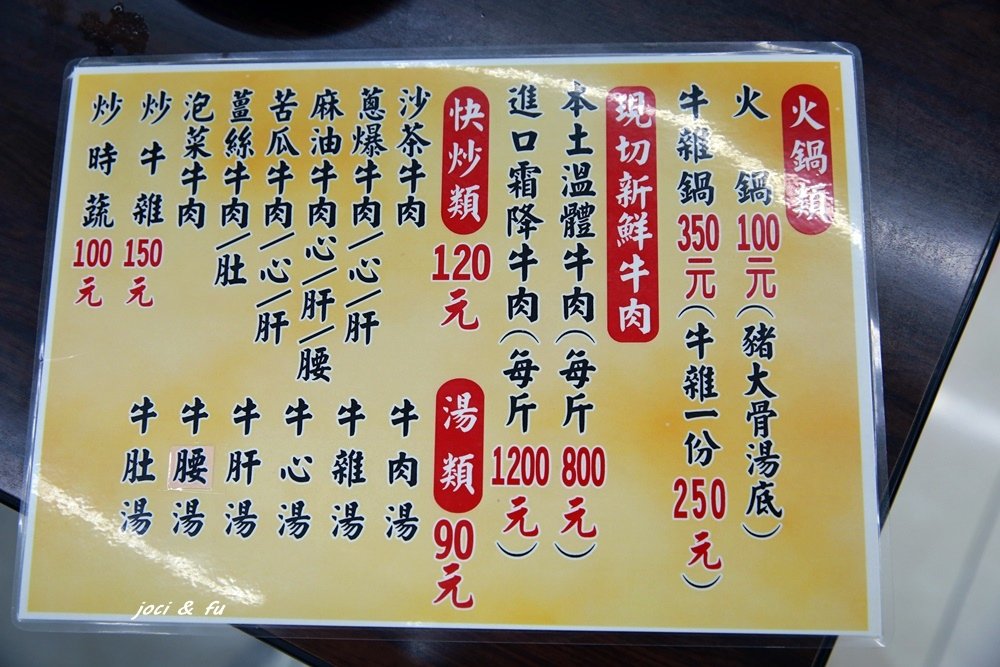 火鍋類
火鍋100元(豬大骨湯底)
牛雜鍋350元(牛雜一份250元)
現切新鮮牛肉
本土溫體牛肉(每斤800元)
進口霜降牛肉(每斤1200元)
快炒類120元
沙茶牛肉
蔥爆牛肉/心/肝
麻油牛肉/心/肝/腰
苦瓜牛肉/心/肝
薑絲牛肉/肚
泡菜牛肉
炒牛雜150元
炒時蔬100元
湯類90元
牛肉湯
牛雜湯
牛心湯
牛肝湯
牛腰湯
牛肚湯
joci & fu